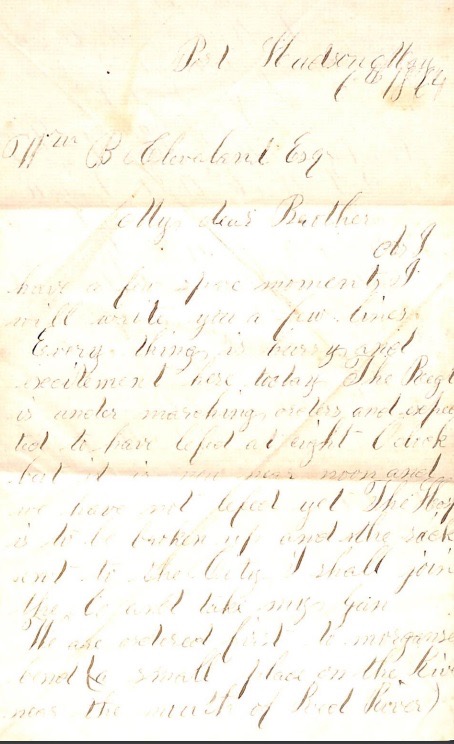 Port Hudson May
6th 1864
Wm B Cleveland Esq
My dear Brother
As I
have a few spare moments I
will write you a few lines
Every thing is hurry and
excitement here today The Regt
is under marching orders and expec
ted to have left at eight Oclock
but it is now near noon and
we have not left yet The Hosp
is to be broken up and the sick
sent to the City I shall join
the Co and take my gun
We are ordered first to morganse
bend (a small place on the Rive
near the mouth of Red River)